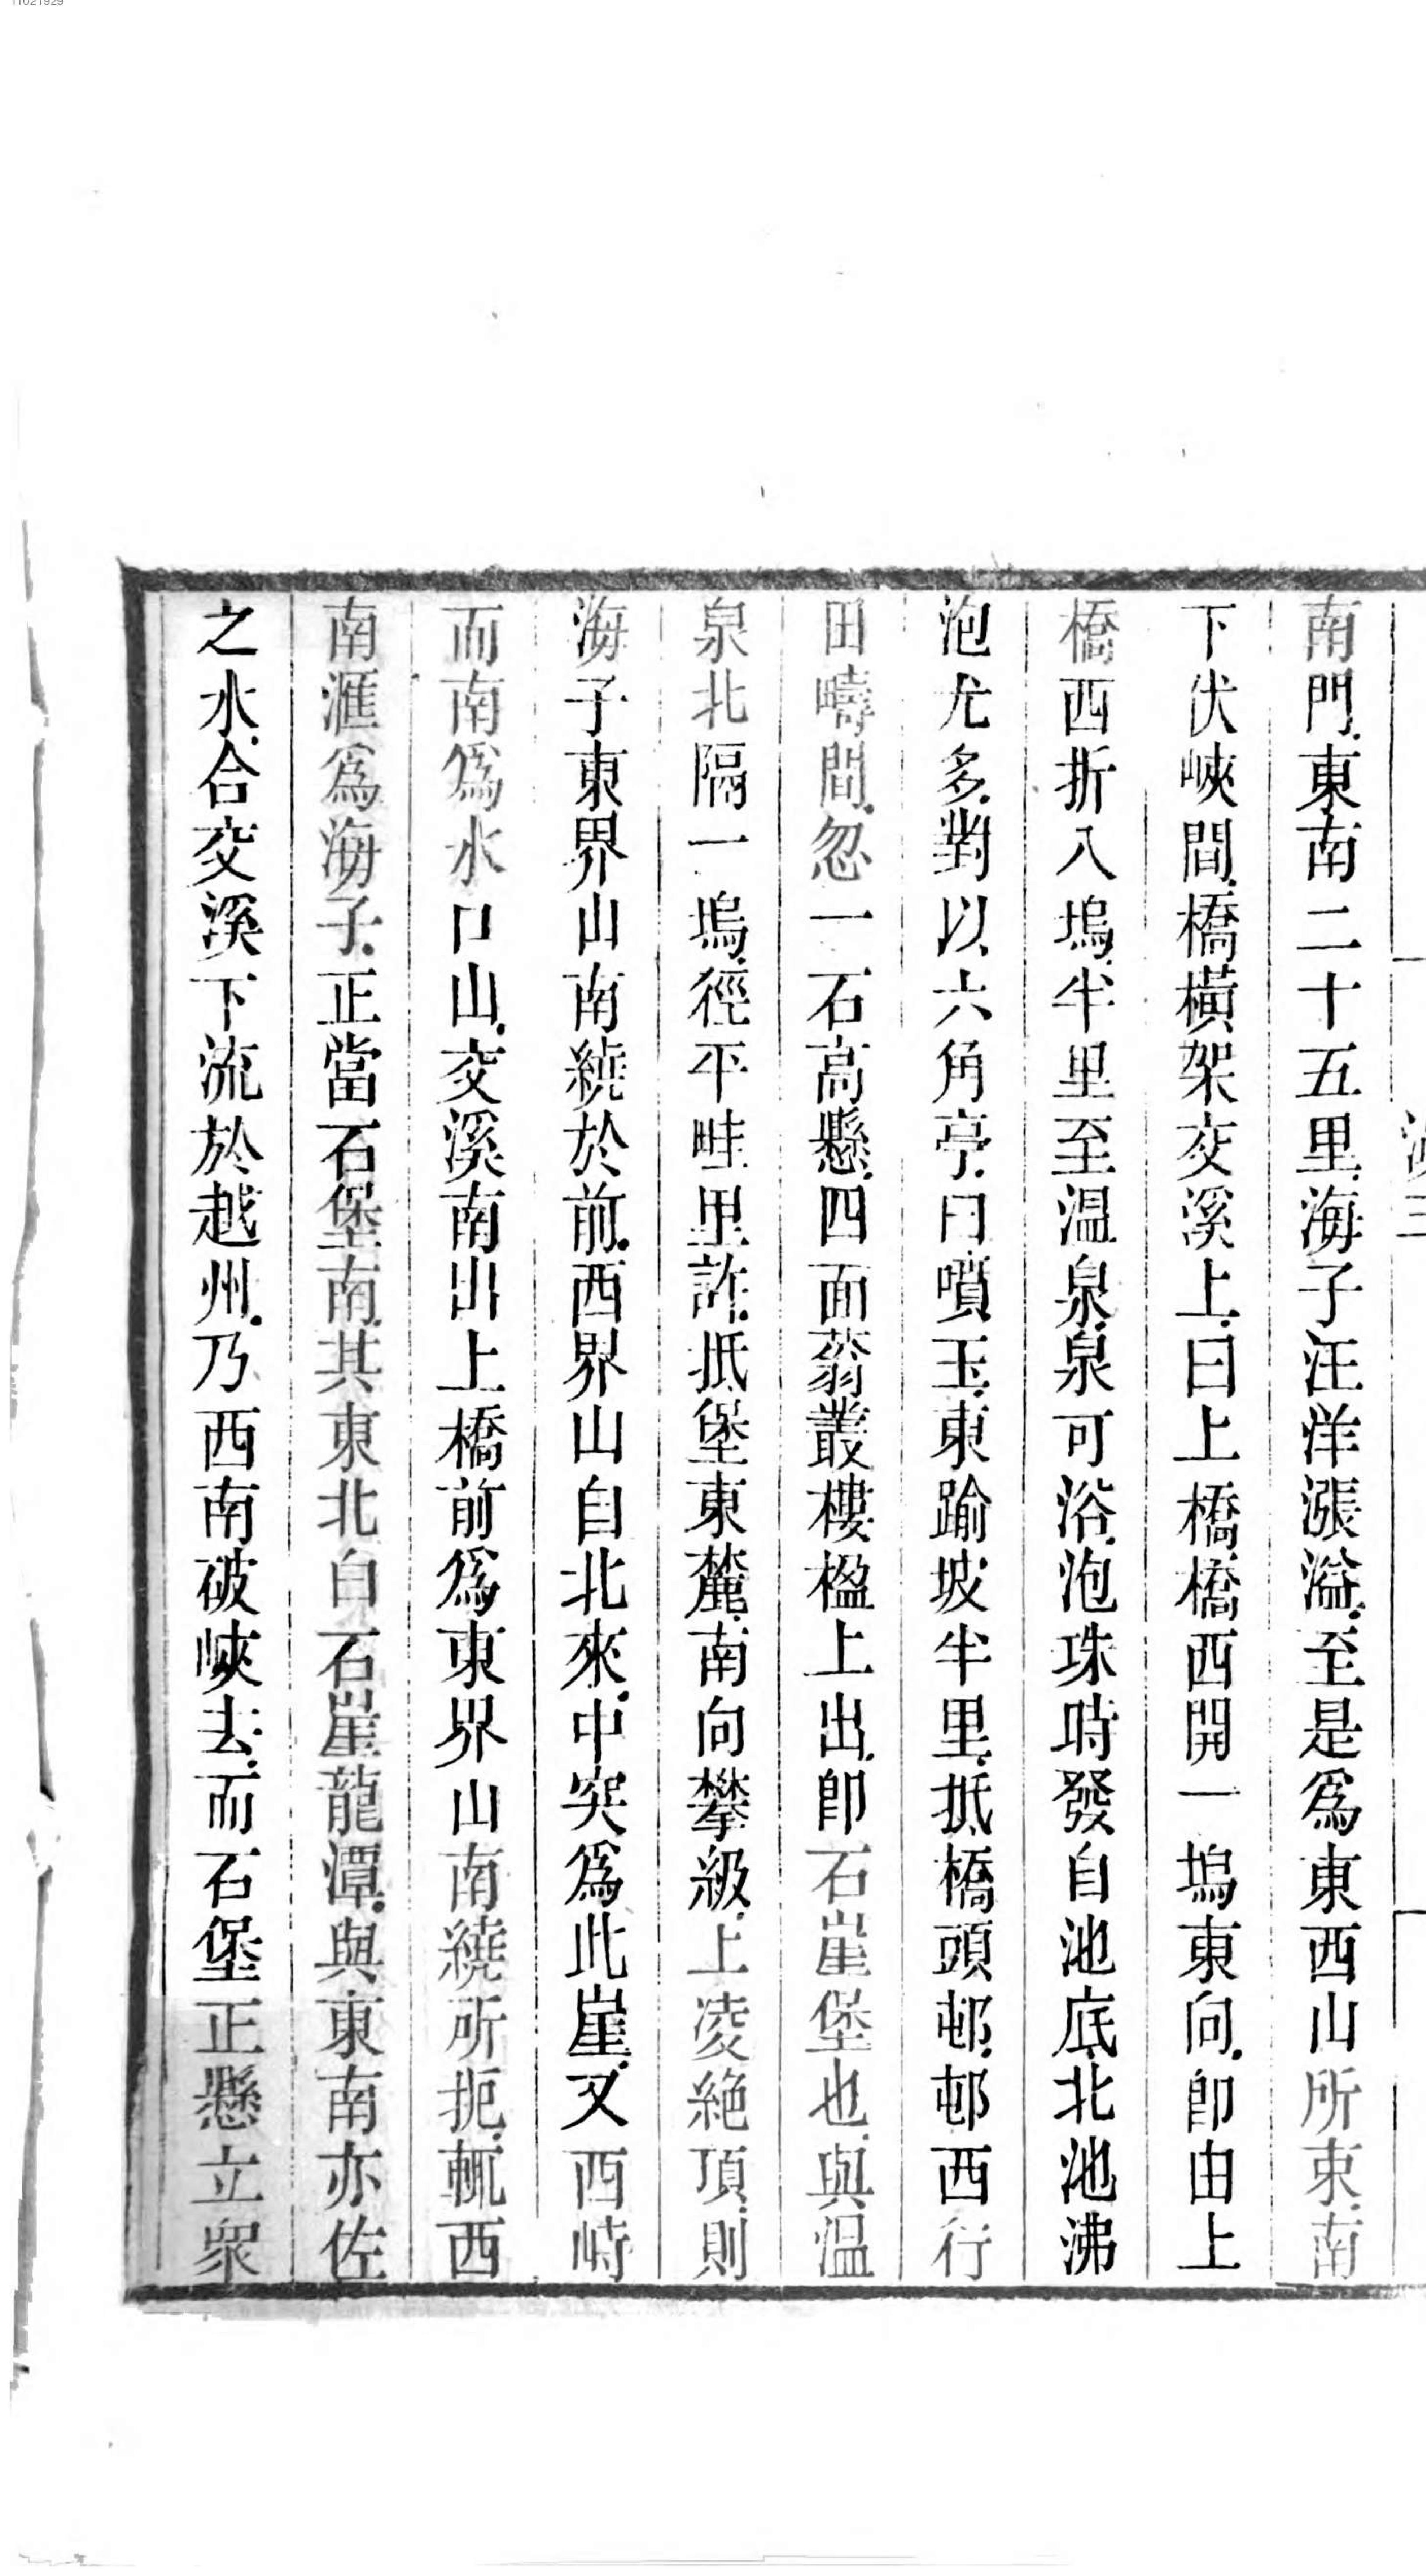 南門東南二十五里海子汪洋漲溢至是爲東西山所束南
下伏峽間橋橫架交溪上曰上橋橋西開一塢東向卽由上
橋西折入塢半里至温泉泉可浴泡珠時發自池底北池沸
泡尤多對以六角亭曰噴玉東踰坡半里抵橋頭邨邨西行
田疇間忽一石高懸四面蓊叢樓楹上出卽石崖堡也與温
泉北隔一塢徑平畦里許抵堡東麓南向攀級上凌絶頂則
海子東界山南繞於前西界山自北來中突爲此崖又西峙
而南爲水口山交溪南出上橋前爲東界山南繞所扼輒西
南滙爲海子正當石堡南其東北白石崖龍潭與東南亦佐
之水合交溪下流於越州乃西南破峽去而石堡正懸立衆